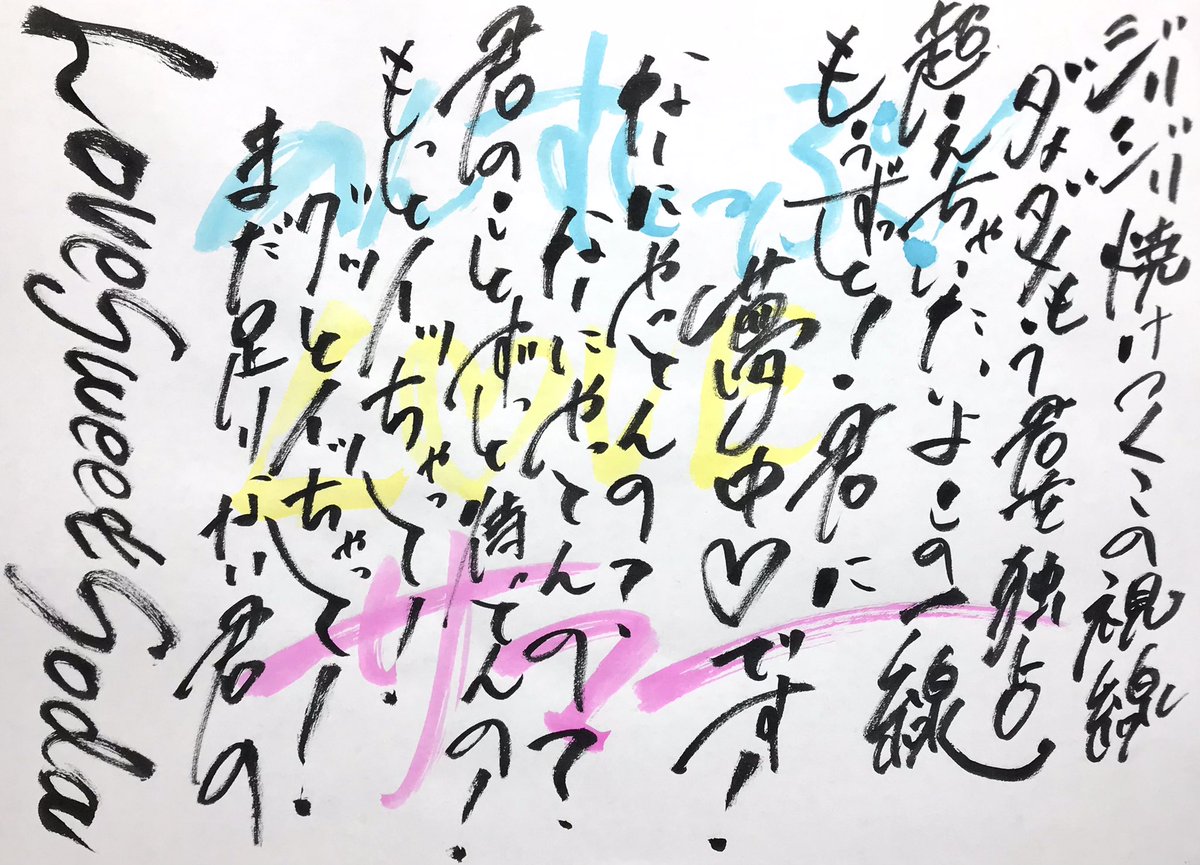 ジリジリ焼けつくこの視線
ダメダメもう君を独占
超えちゃいたいよこの一線
もうずっと！君に
夢中♡です！
なーにやってんのって、
なーにやってんのって
君のことずっと待ってんの！
もっとイッちゃって！
グッとイッちゃって！
まだ足りない君の
Love Sweet Soda
のんすとっぷ
LOVE
サマー